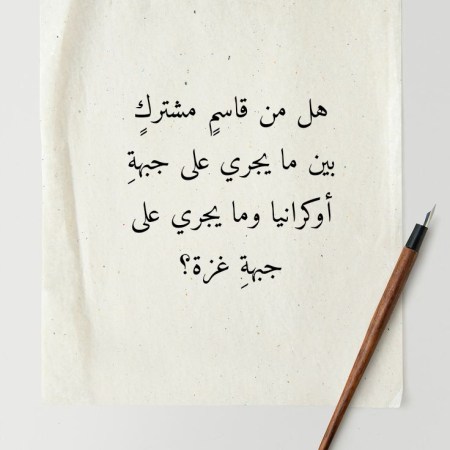 هل من قاسمٍ مشتركٍ
بين ما يجري على جبهةِ
أوكرانيا وما يجري على
جبهةِ غزة؟